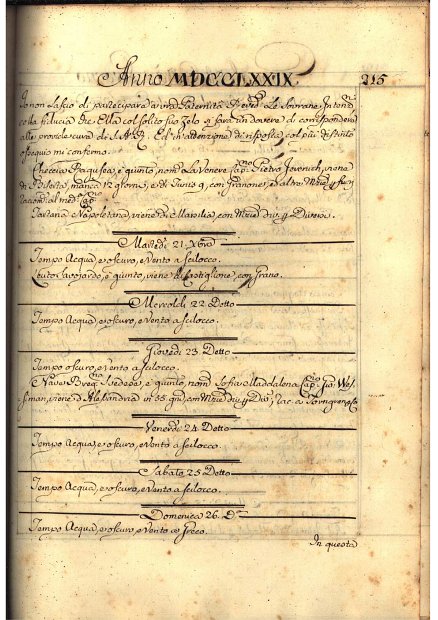 Anno MDCCLXXIX. 215
Io non lascio di partecipare a V.ra Paternità le Sovrane
colla fiducia che Ella col solito suo zelo si farà un dovere di corrispondere
alle provide cure di S.A.R. Ed in attenzione di risposta, col più distinto
ossequio mi confermo.
Checcia Ragusea, è quinto, nom.a La Venere Cap.no Pietro Jovovich, viene
di Biserta, manca 12 giorni, e di Tunis 9, con Granone, ed altro
racom. al med.o Cap.no
Tartana Napoletana, viene di Marsilia, con Mrzie div. p. Diversi.
Martedì 21. Xbre
Tempo Acqua, e oscuro, e Vento a scilocco.
Leuto Savojardo, è quinto, viene di Castiglione, con Grano.
Mercoldì 22 Detto
Tempo Acqua, e oscuro, e Vento a scilocco.
Giovedì 23 Detto
Tempo oscuro, e Vento a scilocco.
Nave Svedese, è quinto, nom.a Sofia Maddalena Cap.no
viene d'Alessandria in 35 gni, con Mrzie div. p. Div.i
Venerdì 24 Detto
Tempo Acqua, e oscuro, e Vento a scilocco.
Sabato 25 Detto
Tempo Acqua, e oscuro, e Vento a scilocco.
Domenica 26. D.o
Tempo Acqua, e oscuro, e Vento a Greco.
In questa